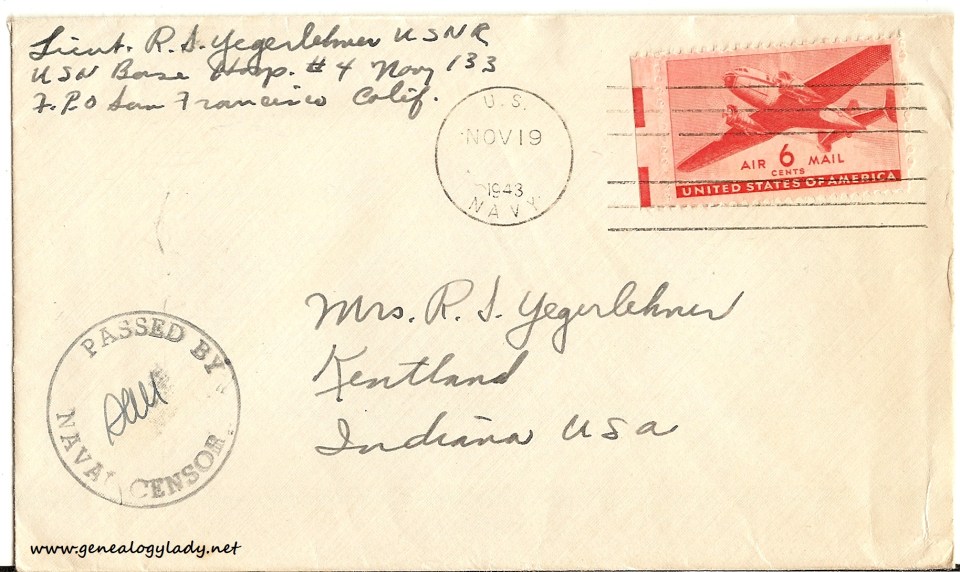 Lieut. R. S. Yegerlehner USNR
USN Base Hosp. #4 Navy 133
F.P.O San Francisco Calif.
U.S.
NOV 19
1943
NAVY
AIR 6 MAIL
CENTS
UNITED STATES OF AMERICA
Mrs. R. S. Yegerlehner
Kentland
Indiana USA
PASSED BY
NAVAL CENSOR
www.genealogylady.net